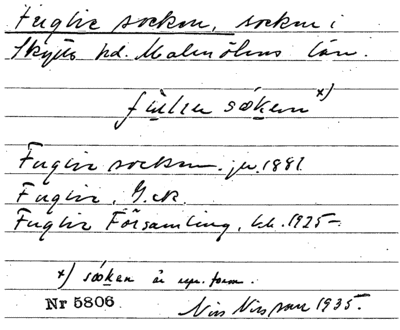 Fuglie socken, socken i
Skytts hd. Malmöhus län.
sɷken x)
Fuglie socken. jr. 1881.
Fuglie, G.ck.
Fuglie Församling, kb. 1925-
x) sɷken är rspr. form.
Nr 5806 Nils Nilsson 1935.